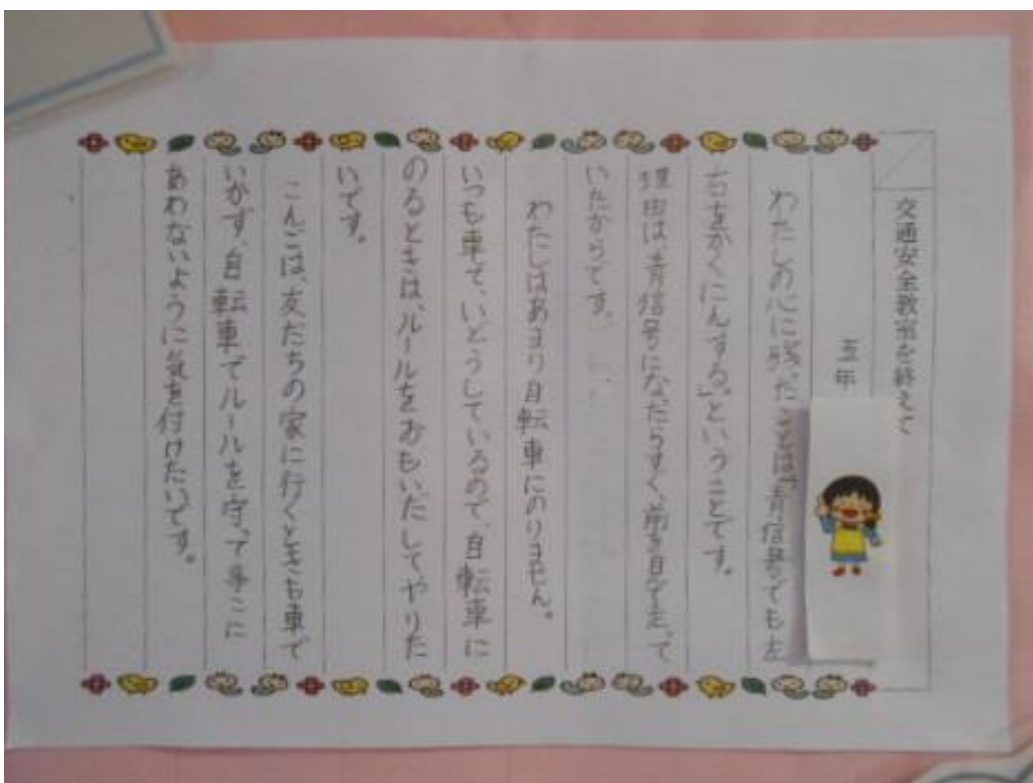 交通安全教室を終えて
五年
わたしの心に残ったことは、「青信号でも左
右をかくにんする。」ということです。
理由は、青信号になったらすぐ、前を見て走って
いたからです。
わたしはあまり自転車にのりません。
いつも車で、いどうしているので、自転車に
のるときは、ルールをおもいだしてやりた
いです。
こんごは、友だちの家に行くときも車で
いかず、自転車でルールを守って事こに
あわないように気を付けたいです。